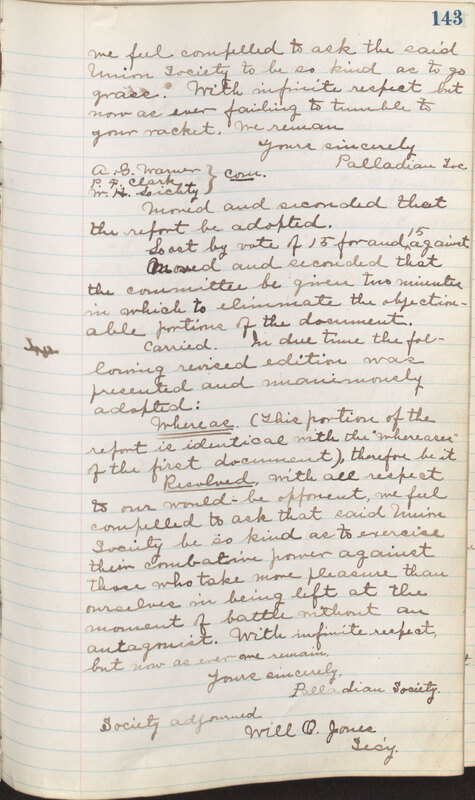 143
we feel compelled to ask the said
Union Society to be so kind as to go
grass. With infinite respect but
now as ever failing to tumble to
your racket. We remain
Yours sincerely
Palladian Soc
A. G. Warner
P. F. Clark
W. H. Lichty } Com.
Moved and seconded that
the report be adopted.
Lost by vote of 15 for and 15 against
Moved and seconded that
the committee be given two minutes
in which to eliminate the objection-
able portions of the document.
Carried. In due time the fol-
lowing revised edition was
presented and unanimously
adopted:
Whereas. (This portion of the
report is identical with the "whereases"
of the first document), therefore be it
Resolved, with all respect
to our would-be opponent, we feel
compelled to ask that said Union
Society be so kind as to exercise
their combative power against
those who take more pleasure than
ourselves in being left at the
moment of battle without an
antagonist. With infinite respect,
but now as ever we remain,
Yours sincerely,
Palladian Society.
Society adjourned
Will O. Jones
Sec'y.